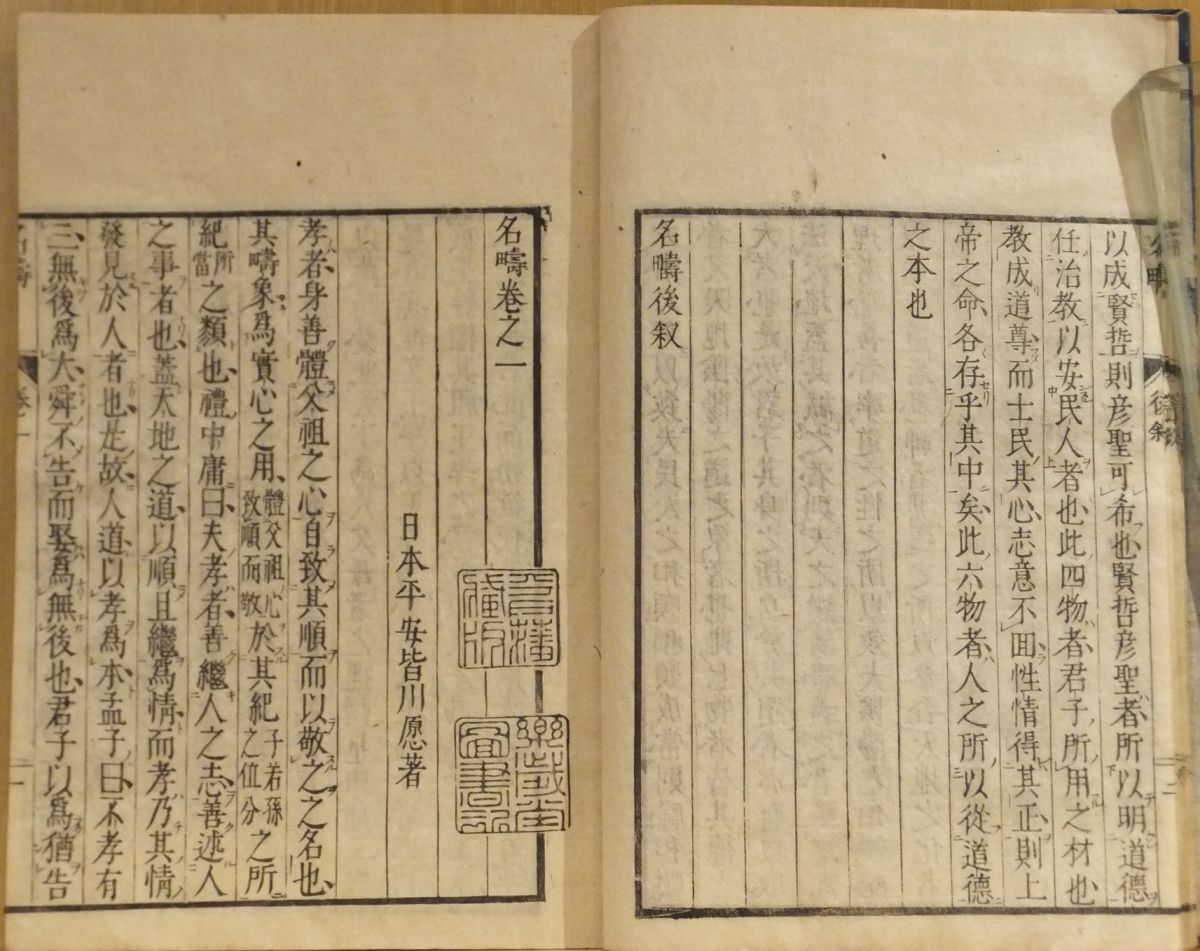 以成賢哲則彦聖可希也賢哲彦聖者所以明道德
任治教以安民人者也此四物者君子所用之材也
教成道尊而士民其心志意不回性情得其正則上
帝之命各存乎其中矣此六物者人之所以從道德
之本也
名疇後叙
名疇卷之一
日本平安皆川愿著
孝者身善體父祖之心自致其順而以敬之之名也
其疇象爲實心之用體父祖心致順而敬於其紀子若孫之值分之所
紀所當之類也禮中庸曰夫孝者善繼人之志善述人
之事者也蓋天地之道以順且繼爲情而孝乃其情
發見於人者也是故人道以孝爲本孟子曰不孝有
三無後爲大舜不告而娶爲無後也君子以爲猶告
名疇
後叙
名疇
卷一
樂歲堂
圖書記